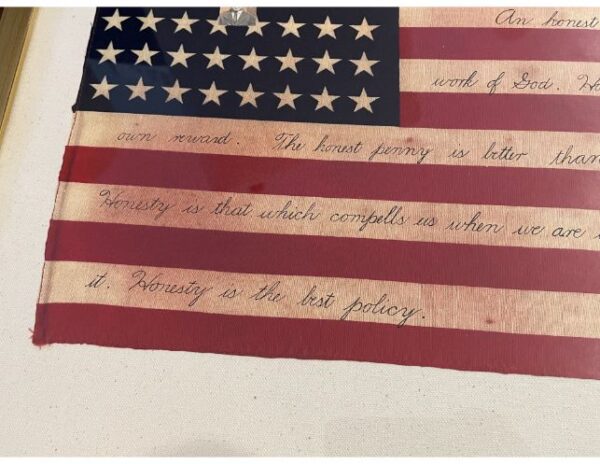 An honest
work of God. Ho
own reward. The honest penny is better than
Honesty is that which compells us when we are
it. Honesty is the best policy.